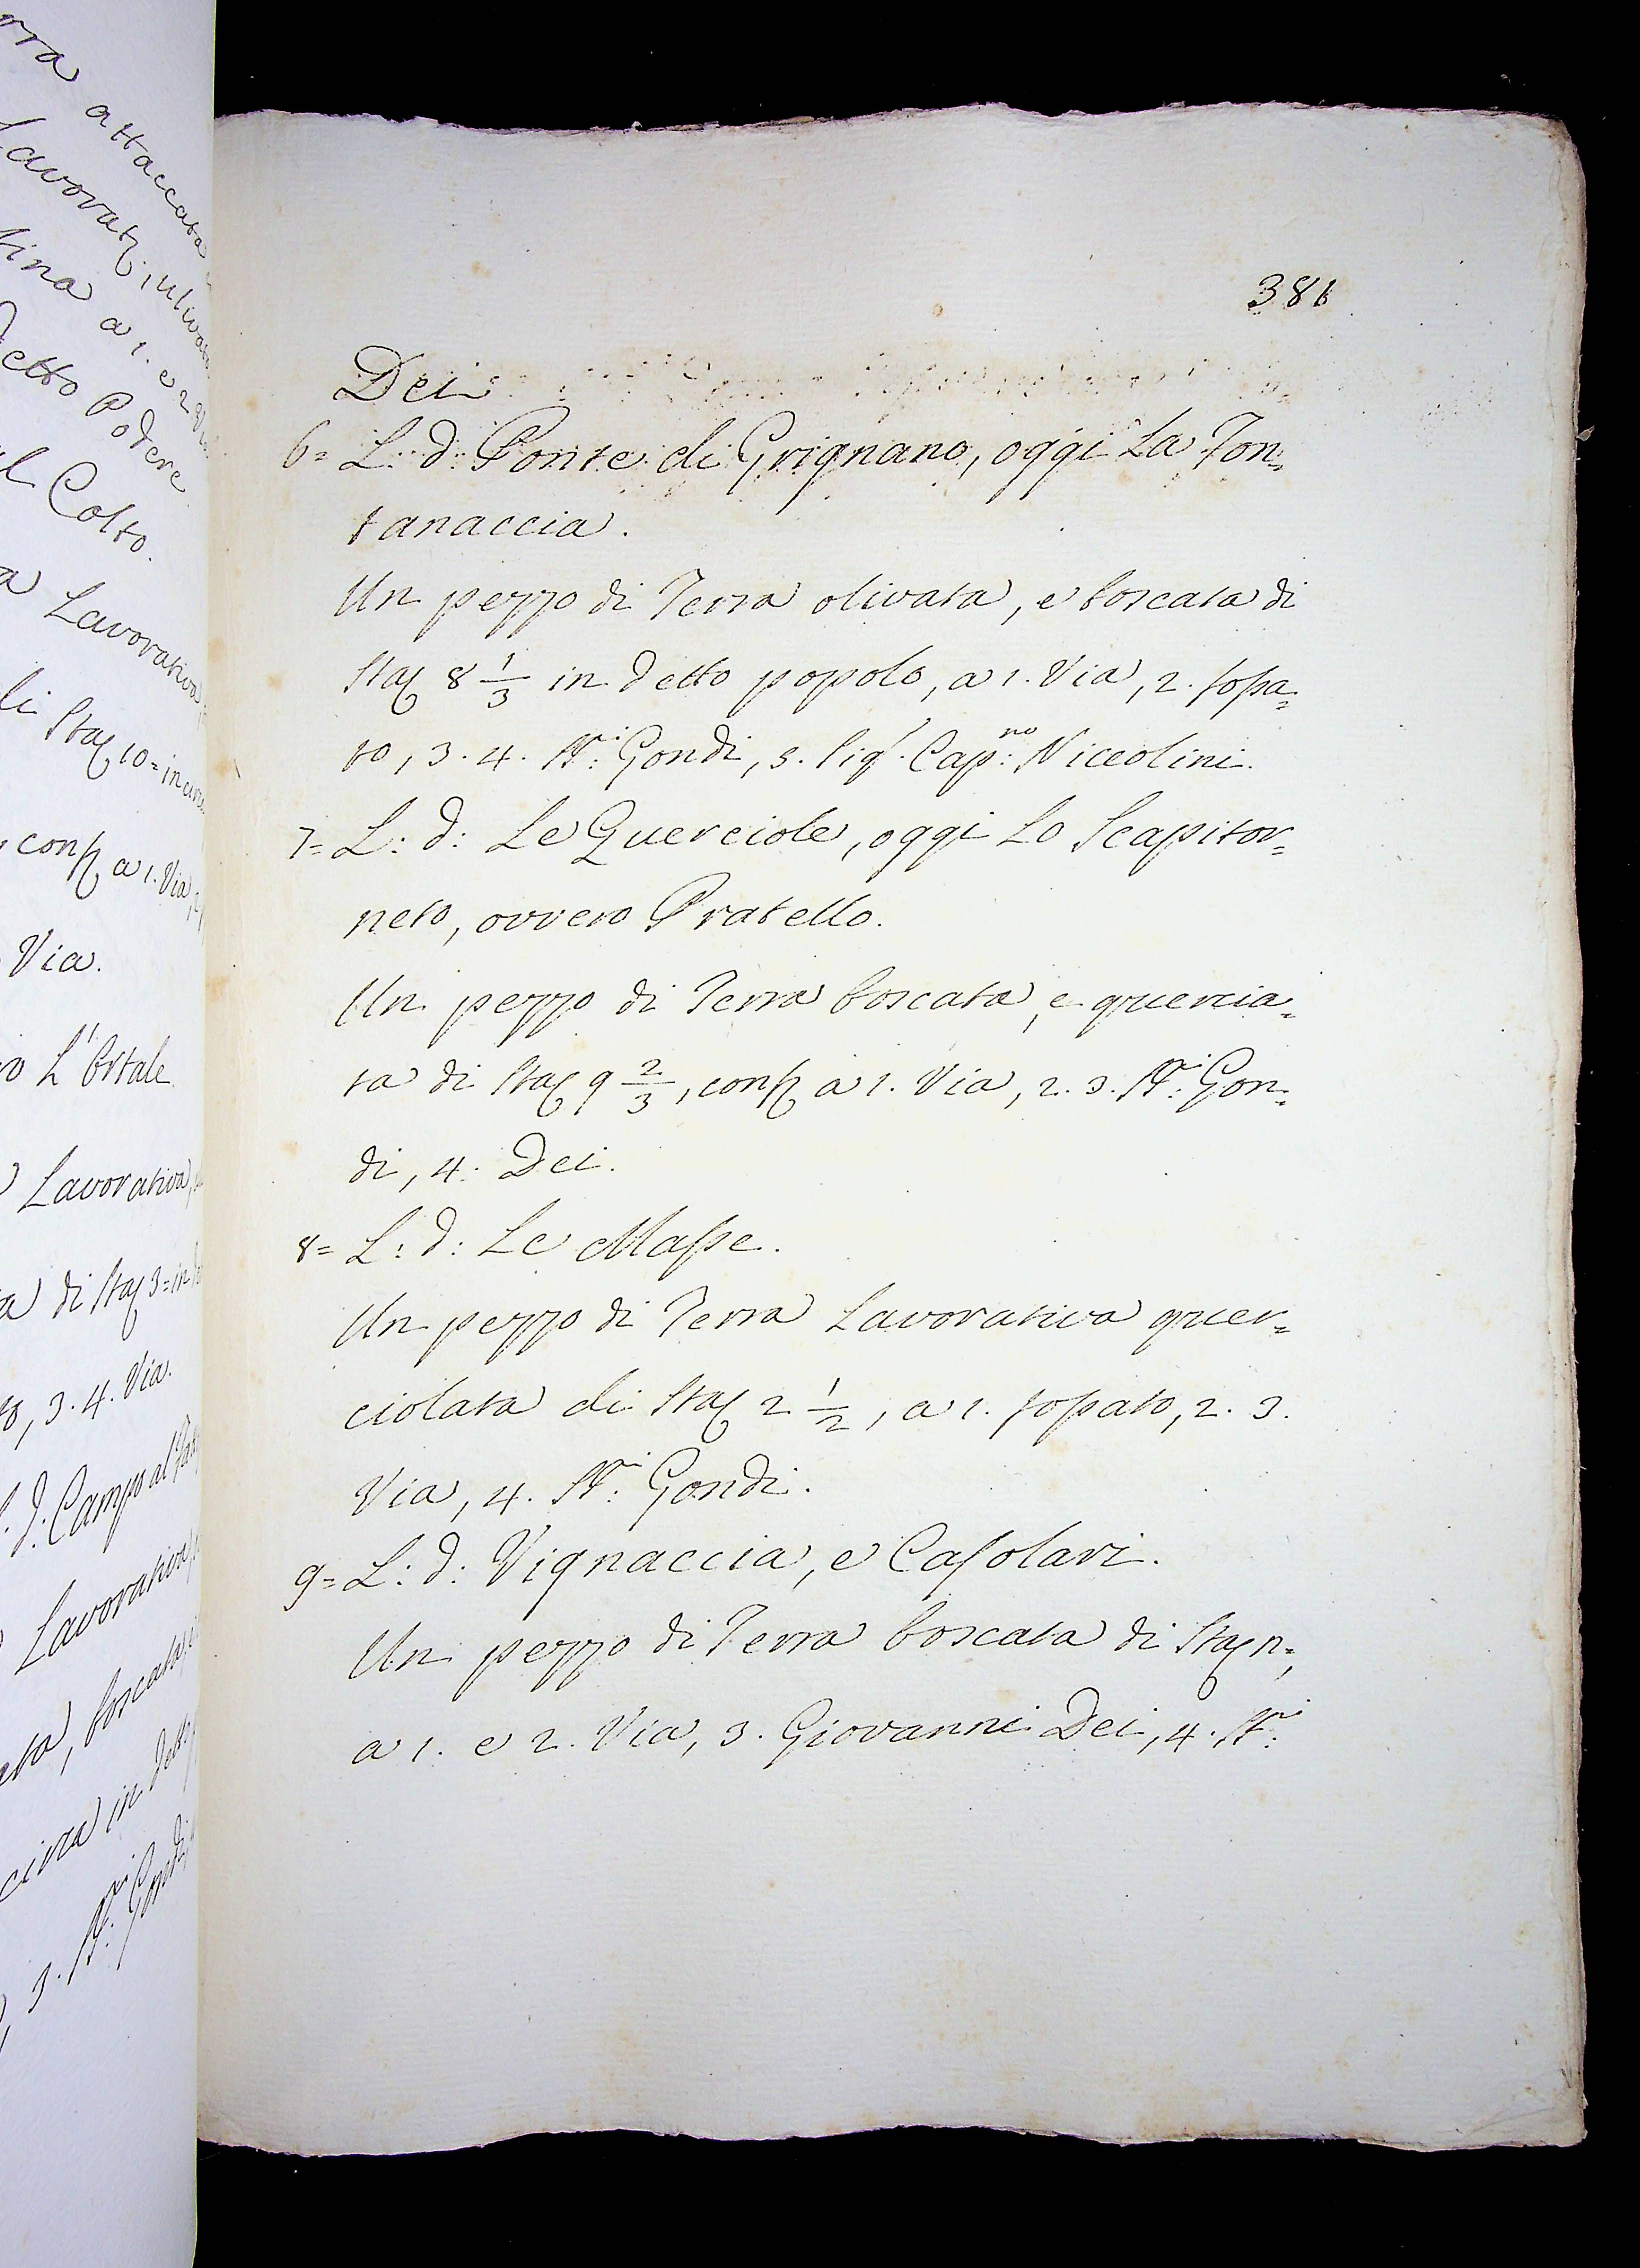 rra attaccata
Lavorat, uliva
tina a 1. e 2 Vi
Detto Podere
il Colto.
a Lavorativa,
di Staq 10= in
conf a 1. Via,
Via.
L'Ortale
Lavorativa,
a di Staq 3= in
to, 3. 4. Via.
L. d. Campo al
Lavorativa
ata, boscata,
in detto
3. SS.ri Gondi
381
Dei
6= L: d: Ponte di Grignano, oggi La Fon=
tanaccia.
Un pezzo di Terra olivata, e boscata di
Staq 8 1/3 in detto popolo, a 1. Via, 2. fossa=
to, 3. 4. SS.ri: Gondi, 5. Sig.r Cap.no: Niccolini.
7= L: d: Le Querciole, oggi Lo Scapitor=
neto, ovvero Pratello.
Un pezzo di Terra boscata, e quercia=
ta di Staq 9 2/3, conf a 1. Via, 2. 3. SS.ri: Gon=
di, 4. Dei.
8= L: d: Le Masse.
Un pezzo di Terra Lavorativa quer=
ciolata di Staq 2 1/2, a 1. fossato, 2. 3.
Via, 4. SS.ri: Gondi.
9= L: d: Vignaccia, e Casolari.
Un pezzo di Terra boscata di Staq n=,
a 1. e 2. Via, 3. Giovanni Dei, 4. SS.ri: